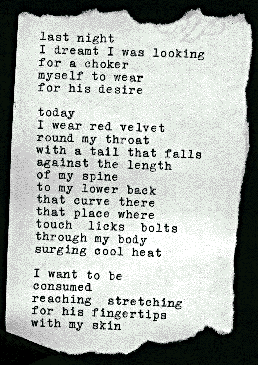 last night
I dreamt I was looking
for a choker
myself to wear
for his desire

today
I wear red velvet
round my throat
with a tail that falls
against the length
of my spine
to my lower back
that curve there
that place where
touch licks bolts
through my body
surging cool heat

I want to be
consumed
reaching stretching
for his fingertips
with my skin